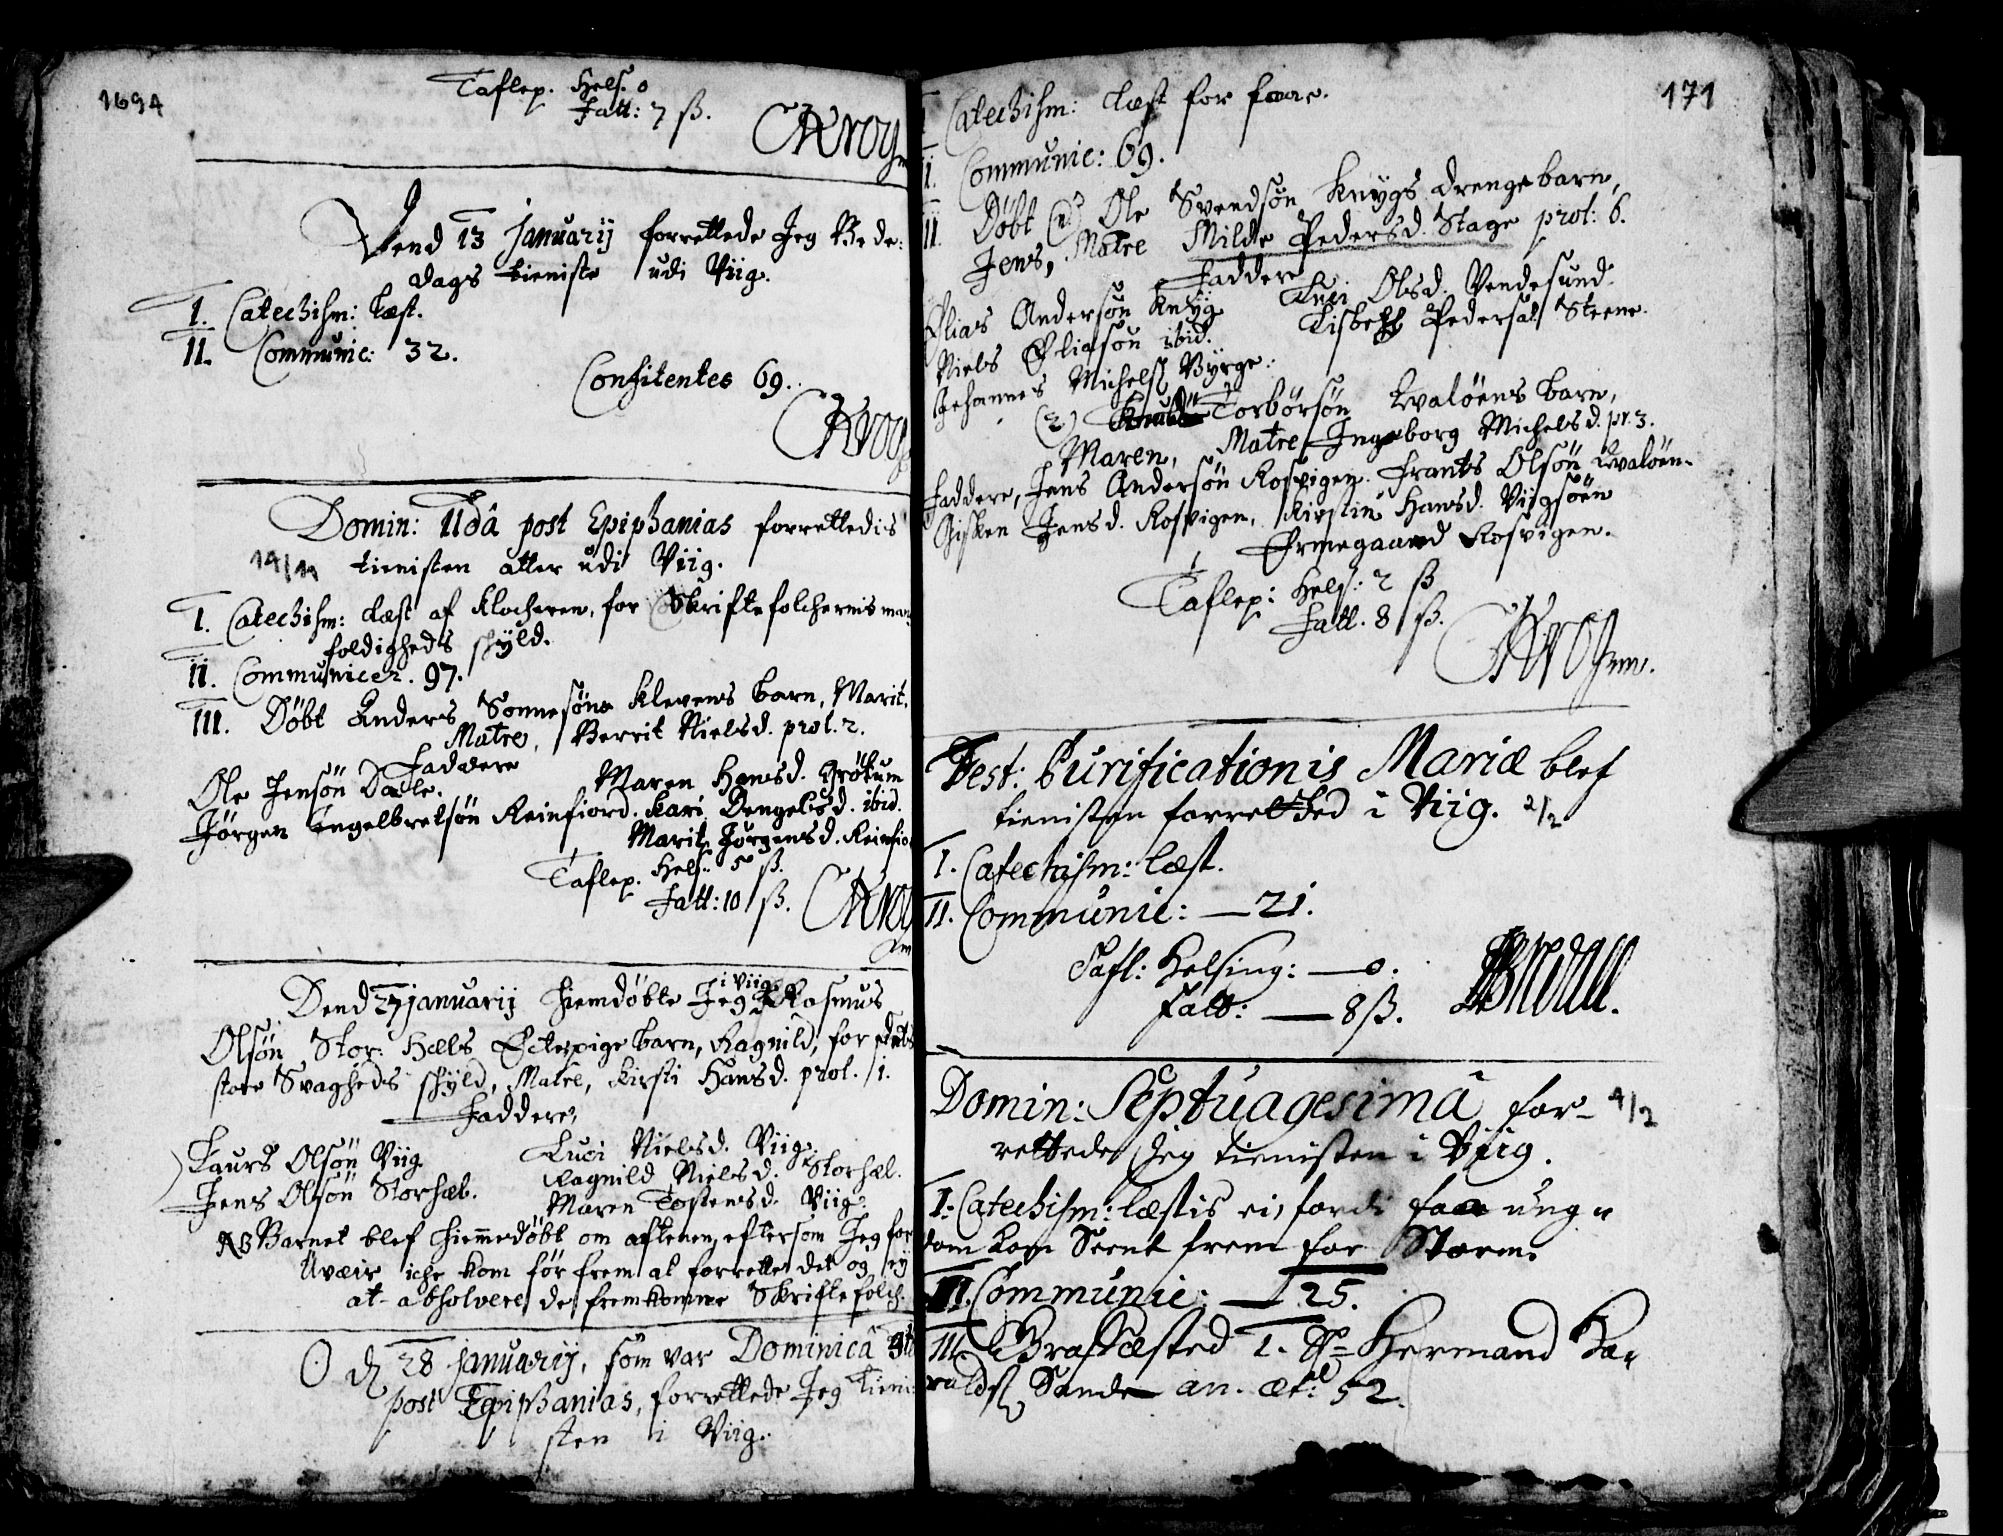 1694
Taflep. Hels. 0
Fatt: 7 ß.
CKrog
Dend 13 Januarij forrettede Jeg Bede-
dags tieniste udi Viig.
I. Catechism: Læst.
II. Communic: 32.
Confitentes 69.
CKrog
Domin: IIdâ post Epiphanias forrettedis
14/1 tienisten atter udi Viig.
I. Catechism: Læst af Klocheren, for Skriftefolchernis man-
foldigheds skyld.
II. Communicer. 97.
III. Döbt Anders Sonnesöns Klevens barn, Marit,
Matre, Berrit Nielsd. prol. 2.
Faddere
Ole Jensön Dale. Maren Hansd. Grötum
Jörgen Engelbretsön Reinfiord. Kari Engelisd. ibid.
Marit Jörgensd. Reinfio
Taflep. Hels: 5 ß.
Fatt: 10 ß. CKrog
Dend 27 januarij hiemdöbte Jeg i Viig Rasmus
Olsön Stor: Hæls Ectepige barn, Ragnild, for
store Svagheds skyld, Matre, Kirsti Hansd. prol. 1.
Faddere,
Laurs Olsön Viig Luci Nielsd. Viig.
Jens Olsön Storhæl. Ragnild Nielsd. Storhæl.
Maren Tostensd. Viig.
NB Barnet blef hiemmedöbt om aftenen, eftersom Jeg for
Uvæir iche kom för frem at forrette det og ej
at absolvere de fremkomne Skriftefolch.
d 28 januarij, som var Dominica
post Epiphanias, forrettede Jeg tieni-
sten i Viig.
171
I. Catechism: Læst for faae.
II. Communic: 69.
III. Döbt (1) Ole Svendsön Knygs drengebarn,
Jens, Matre Milde Pedersd. Stage prol: 6.
Faddere
Elias Andersön Knyg Luci Olsd. Vendesund.
Niels Eliasön ibid. Lisbeth Pedersd. Steene.
Johannes Michels Byrge.
(2) Torbörsön Qvalöens barn,
Maren, Matre Ingeborg Michelsd. pr. 3.
Faddere, Jens Andersön Rosvigen. Frants Olsön Qvalöen.
Gisken Jensd. Rosvigen, Kirstin Hansd. Viigsöen
Ermegaard Rosvigen.
Taflep: Hels: 2 ß
Fatt. 8 ß.
CKrog
Fest: Purificationis Mariæ blef
tienisten forretted i Viig. 2/2
I. Catechism: læst.
II. Communic: — 21.
Tafl: Helsing: — 0.
Fatt: — 8 ß.
Domin: Septuagesimâ for- 4/2
rettede Jeg tienisten i Viig.
I. Catechism: læstis ei, fordi faae unge
som kom Seent frem for Storm.
II. Communic: — 25.
III. Grafæsted 1. Hermand Ha-
ralds Sande an. æt: 52.